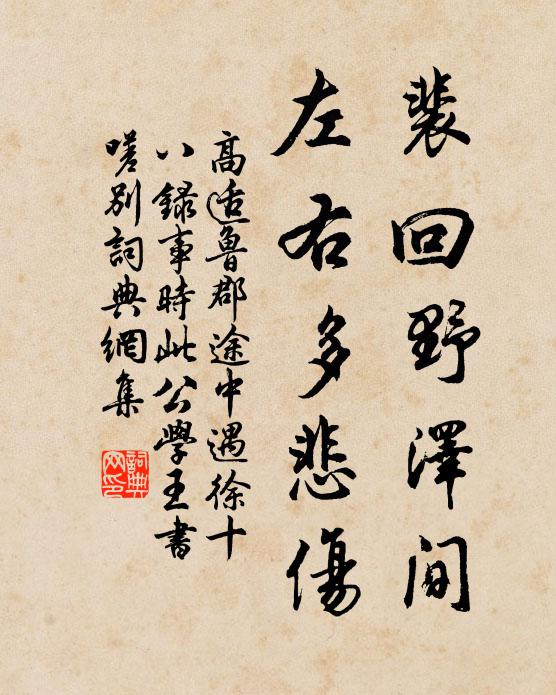 裴回野澤間
左右多悲傷
高适魯郡途中遇徐十
八錄事時此公學王書
嗟別詞典網集
詞典网印